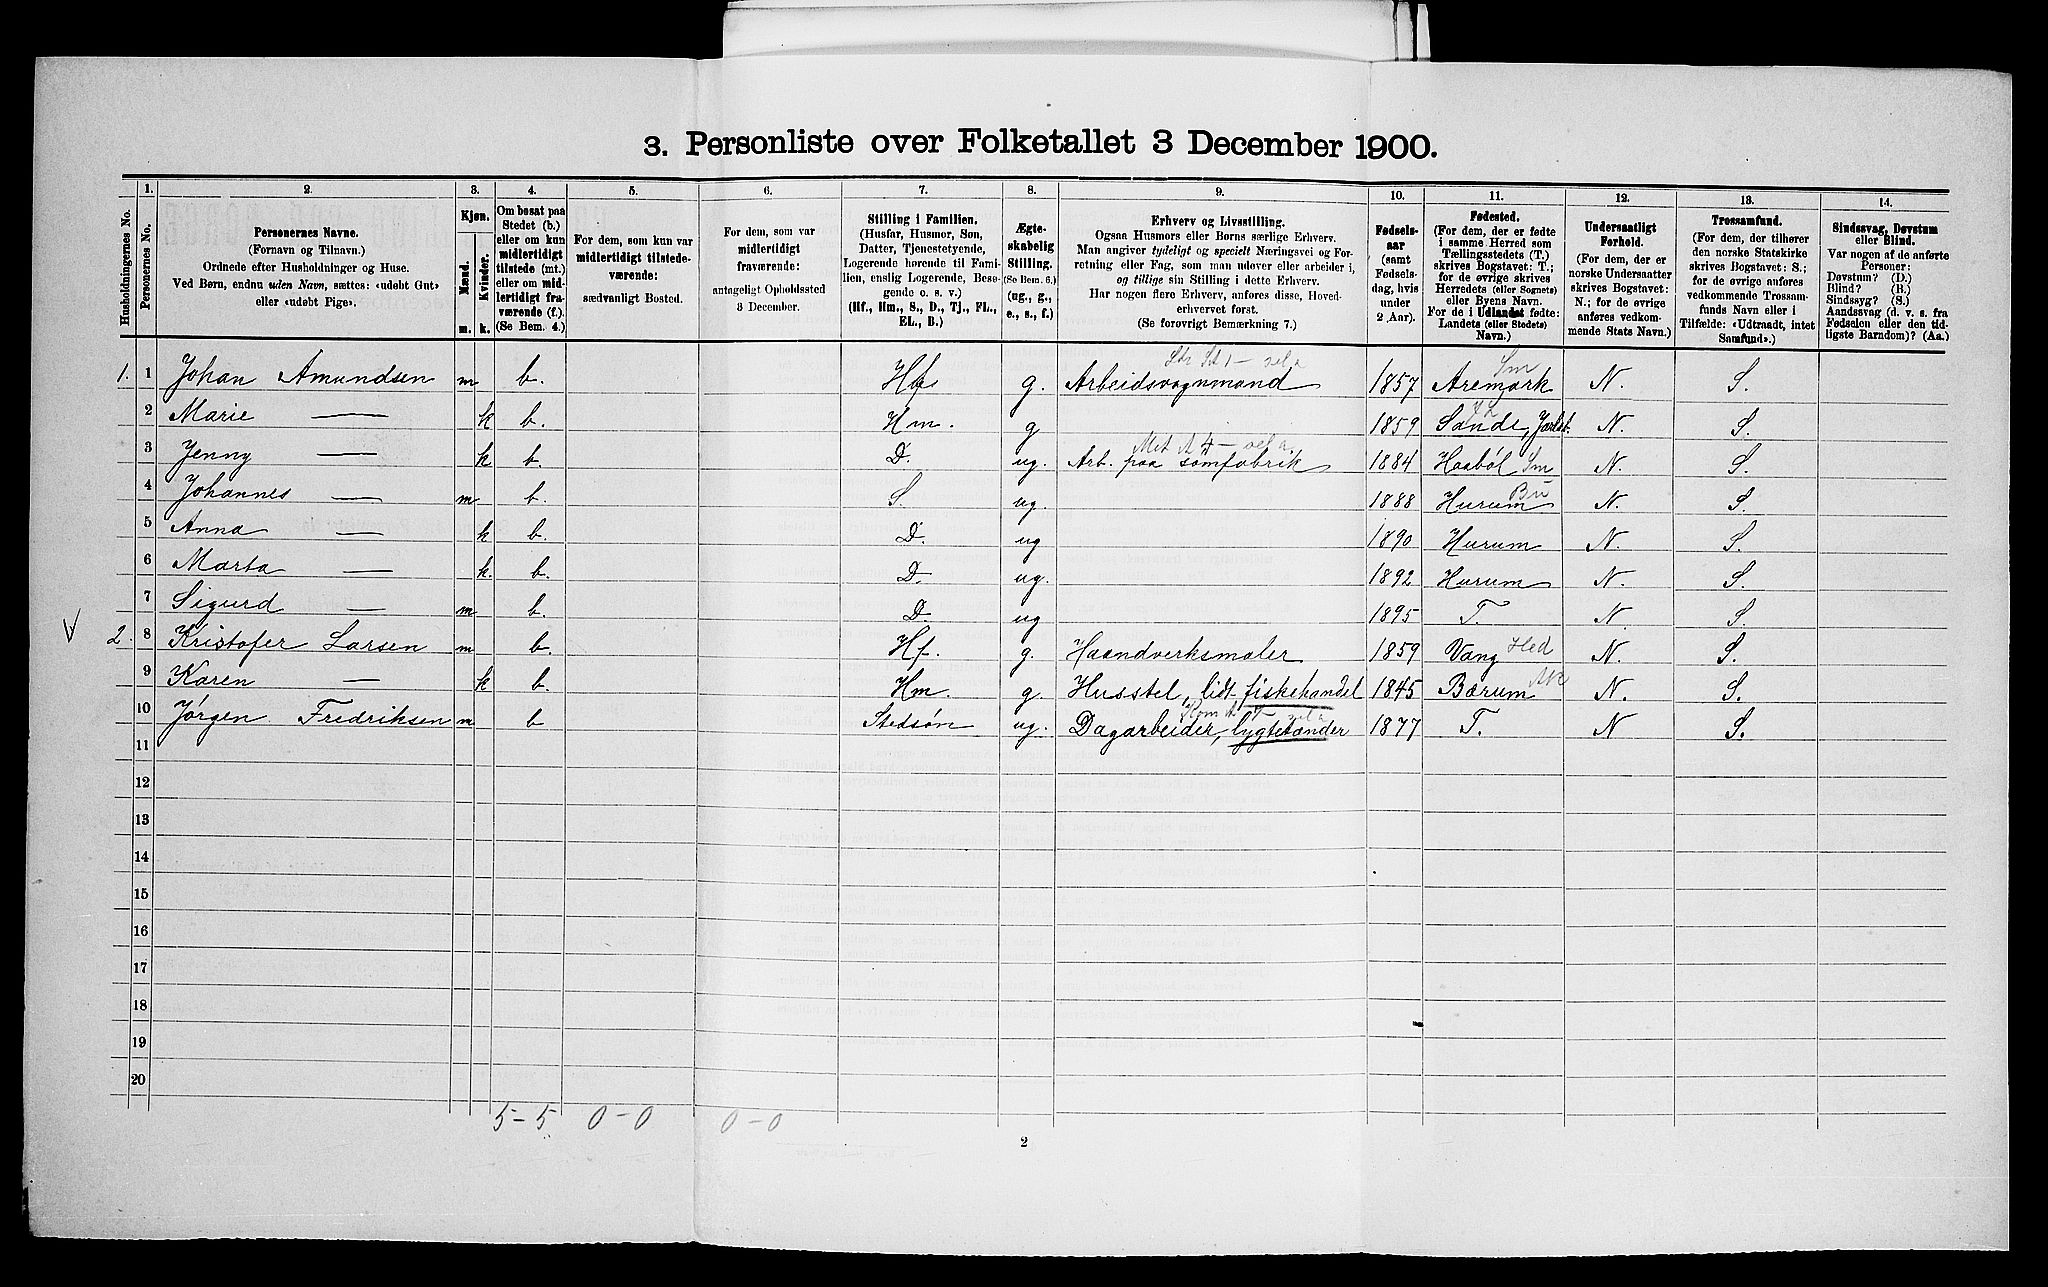 3. Personliste over Folketallet 3 December 1900.
Husholdningernes No.
1. Personernes No.
2. Personernes Navne.
(Fornavn og Tilnavn.)
Ordnede efter Husholdninger og Huse.
Ved Børn, endnu uden Navn, sættes: «udøbt Gut»
eller «udøbt Pige».
3. Kjøn.
Mænd. m.
Kvinder. k.
4. Om bosat paa
Stedet (b.)
eller om kun
midlertidigt
tilstede (mt.)
eller om mid-
lertidigt fra-
værende (f.).
(Se Bem. 4.)
5. For dem, som kun var
midlertidigt tilstede-
værende:
sædvanligt Bosted.
6. For dem, som var
midlertidigt
fraværende:
antageligt Opholdssted
3 December.
7. Stilling i Familien.
(Husfar, Husmor, Søn,
Datter, Tjenestetyende,
Logerende hørende til Fami-
lien, enslig Logerende, Besø-
gende o. s. v.)
(Hf., Hm., S., D., Tj., FL.,
EL., B.)
8. Ægte-
skabelig
Stilling.
(Se Bem. 6.)
(ug., g.,
e., s., f.)
9. Erhverv og Livsstilling.
Ogsaa Husmors eller Børns særlige Erhverv.
Man angiver tydeligt og specielt Næringsvei og For-
retning eller Fag, som man udøver eller arbeider i,
og tillige sin Stilling i dette Erhverv.
Har nogen flere Erhverv, anføres disse, Hoved-
erhvervet først.
(Se forøvrigt Bemærkning 7.)
10. Fødsels-
aar
(samt
Fødsels-
dag, hvis
under
2 Aar).
11. Fødested.
(For dem, der er fødte
i samme Herred som
Tællingsstedets (T.)
skrives Bogstavet: T.;
for de øvrige skrives
Herredets (eller Sognets)
eller Byens Navn.
For de i Udlandet fødte:
Landets (eller Stedets)
Navn.)
12. Undersaatligt
Forhold.
(For dem, der er
norske Undersaatter
skrives Bogstavet:
N.; for de øvrige
anføres vedkom-
mende Stats Navn.)
13. Trossamfund.
(For dem, der tilhører
den norske Statskirke
skrives Bogstavet: S.;
for de øvrige anføres
vedkommende Trossam-
funds Navn eller i
Tilfælde: «Udtraadt, intet
Samfund».)
14. Sindssvag, Døvstum
eller Blind.
Var nogen af de anførte
Personer:
Døvstum? (D.)
Blind? (B.)
Sindssyg? (S.)
Aandssvag (d. v. s. fra
Fødselen eller den tid-
ligste Barndom)? (Aa.)
1. 1 Johan Amundsen m b. Hf g. Arbeidsvognmand 1857 Aremark Sm N. S.
2 Marie — k b. Hm. g 1859 Sande, Jarlsb. N. S.
3 Jenny — k b. D. ug. Arb. paa sømfabrik 1884 Haabøl Sm N. S.
4 Johannes — m b. S. ug. 1888 Hurum Bu N. S.
5 Anna — k b. D. ug 1890 Hurum N. S.
6 Marta — k. b. D. ug. 1892 Hurum N. S.
7 Sigurd — m b. D. ug 1895 T. N. S.
V 2. 8 Kristofer Larsen m b. Hf. g. Haandverksmaler 1859 Vang Hed N. S.
9 Karen — k b. Hm. g. Husstel, lidt fiskehandel 1845 Bærum Ak N. S.
10 Jørgen Fredriksen m b Stedsøn ug. Dagarbeider, lygtetænder 1877 T. N S.
11
12
13
14
15
16
17
18
19
20
5-5 0-0 0-0
2